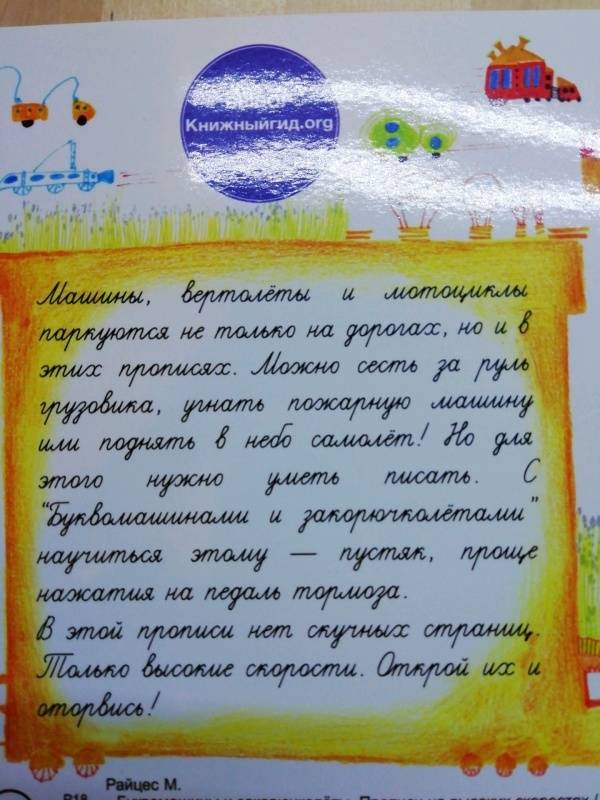 Книжныйгид.org
Машины, вертолёты и мотоциклы
паркуются не только на дорогах, но и в
этих прописях. Можно сесть за руль
грузовика, угнать пожарную машину
или поднять в небо самолёт! Но для
этого нужно уметь писать. С
"Буквомашинами и закорючколётами"
научиться этому — пустяк, проще
нажатия на педаль тормоза.
В этой прописи нет скучных страниц.
Только высокие скорости. Открой их и
оторвись!
Райцес М.